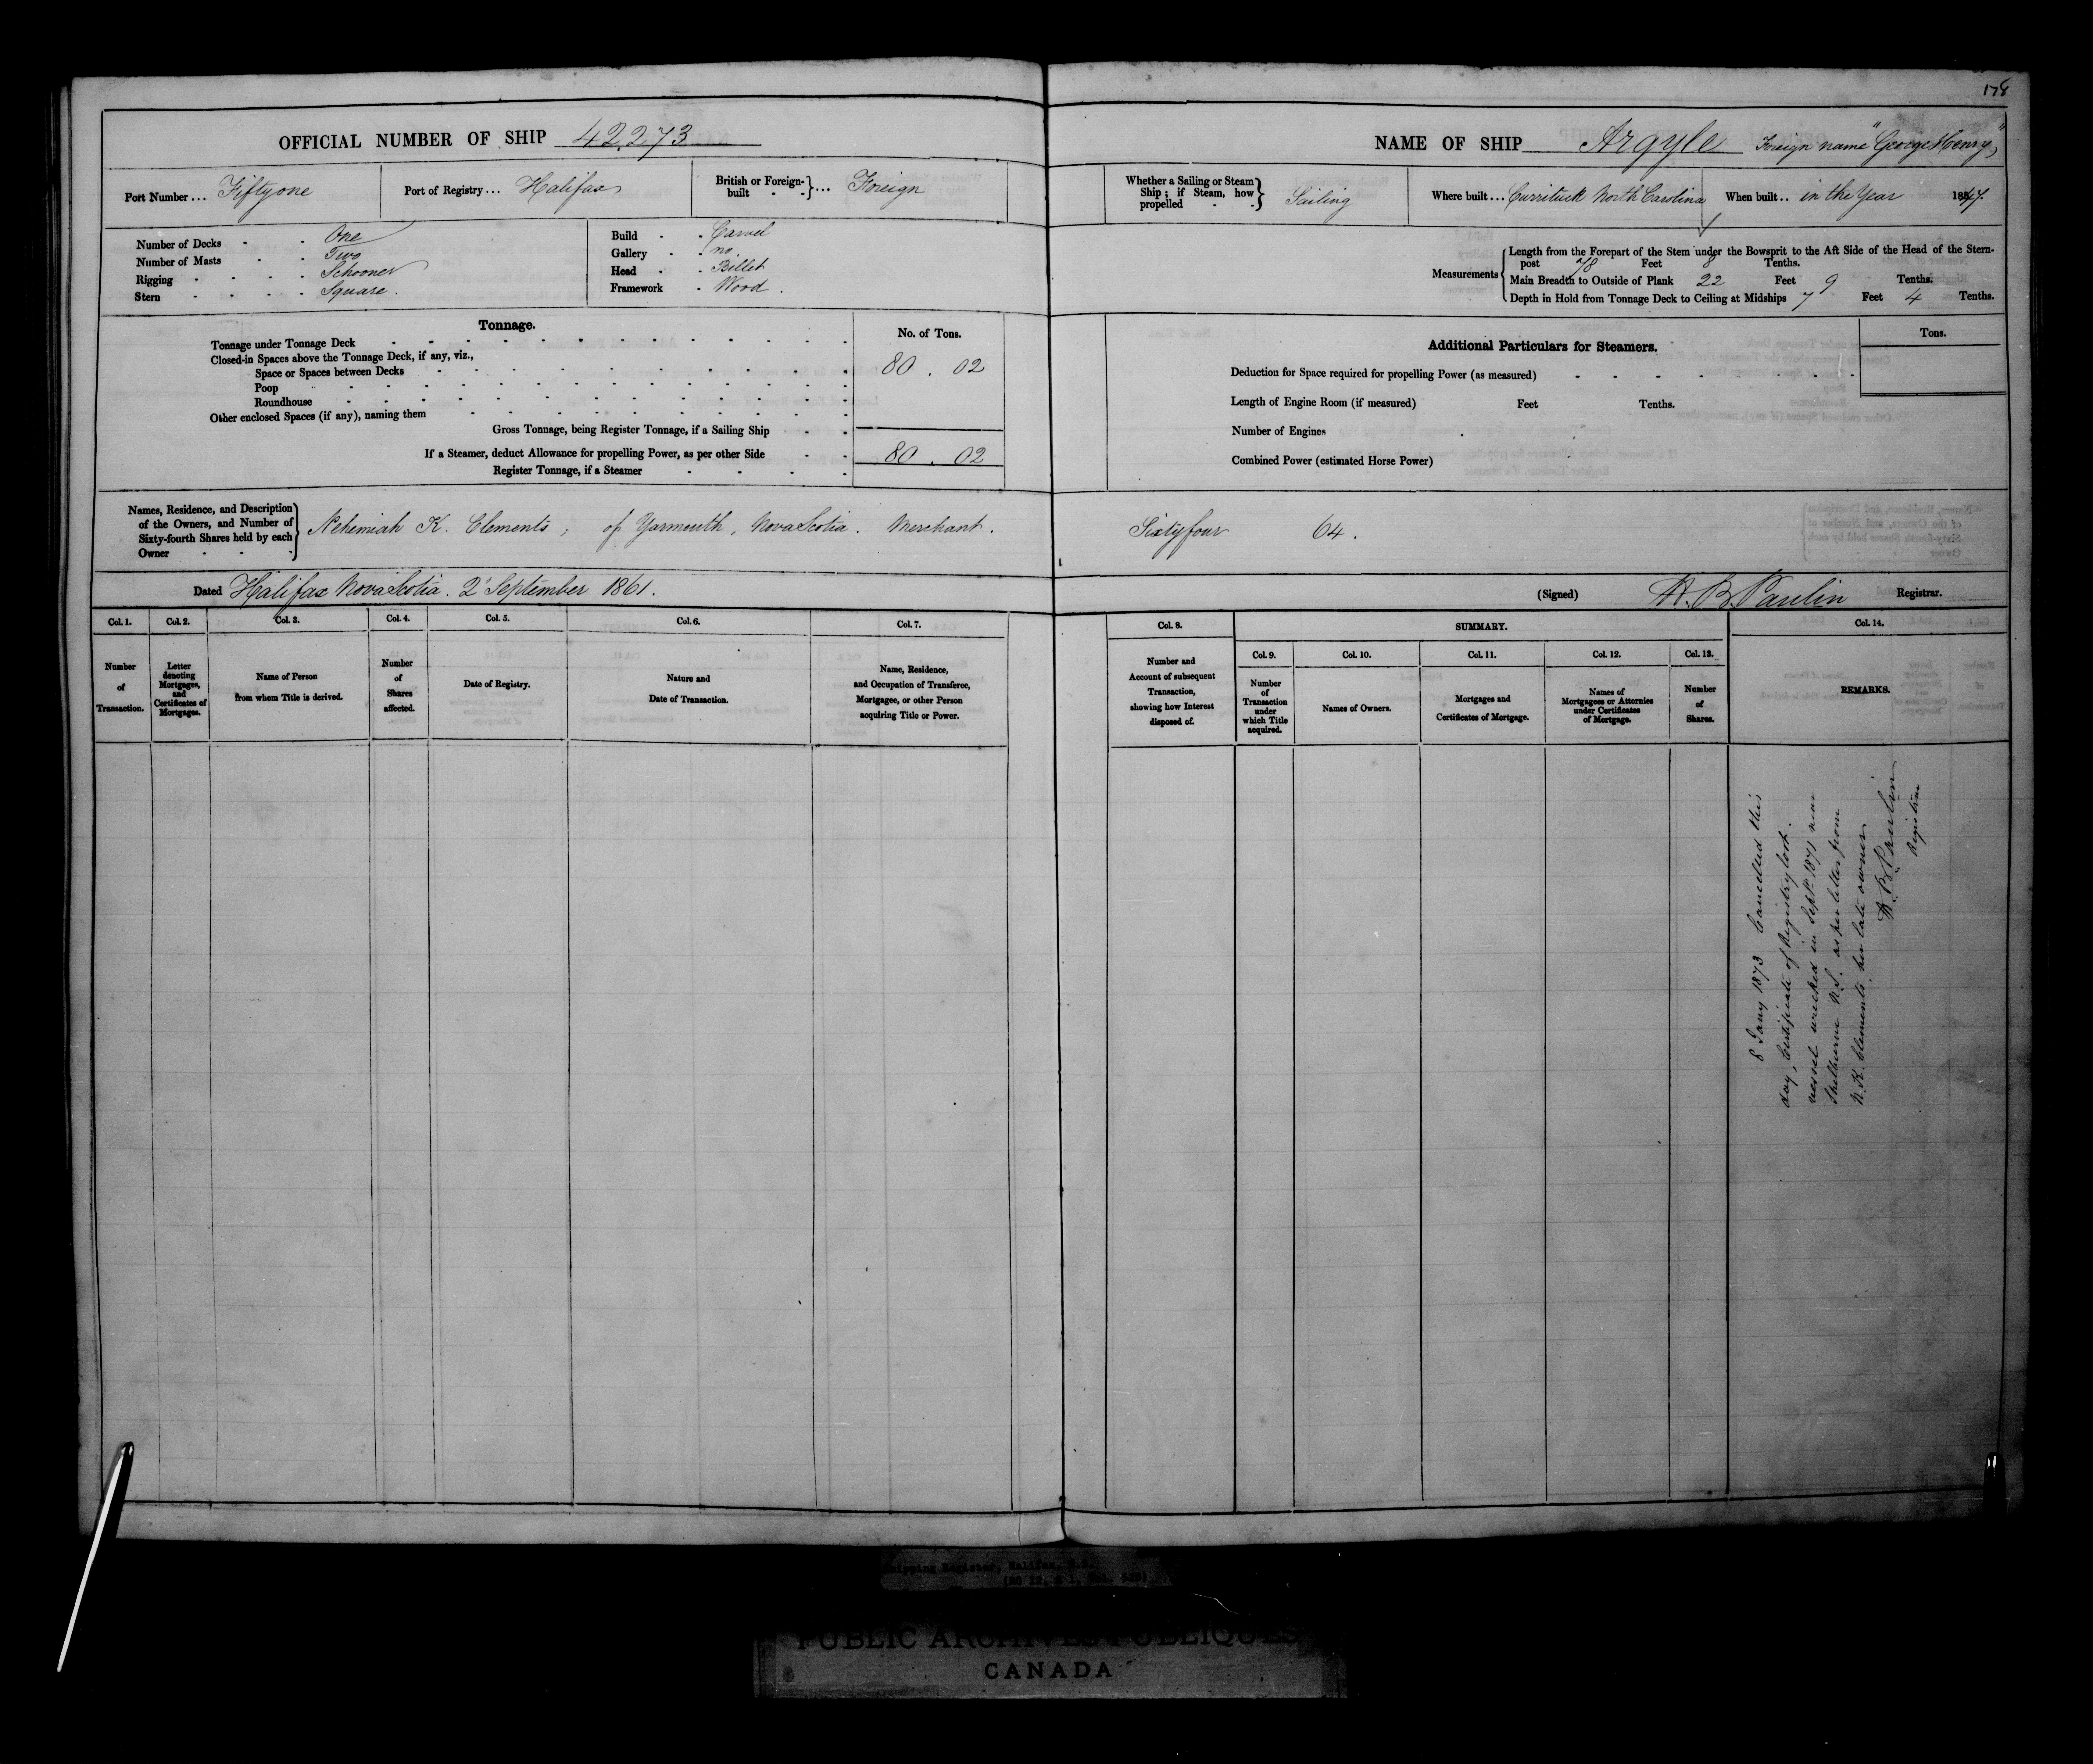 178
OFFICIAL NUMBER OF SHIP 42.273
Port Number ... Fifty one
Port of Registry ... Halifax
British or Foreign-built - - } ... Foreign
Number of Decks - - One
Number of Masts - - Two
Rigging - - - - Schooner
Stern - - - - Square.
Build - - Carvel
Gallery - - no
Head - - Billet
Framework - Wood.
Tonnage.
No. of Tons.
Tonnage under Tonnage Deck
Closed-in Spaces above the Tonnage Deck, if any, viz.,
Space or Spaces between Decks 80 . 02
Poop
Roundhouse
Other enclosed Spaces (if any), naming them
Gross Tonnage, being Register Tonnage, if a Sailing Ship
If a Steamer, deduct Allowance for propelling Power, as per other Side 80 . 02
Register Tonnage, if a Steamer
NAME OF SHIP Argyle Foreign name "George Henry"
Whether a Sailing or Steam Ship; if Steam, how propelled - - } Sailing
Where built ... Currituck North Carolina
When built .. in the Year 1847.
Measurements
Length from the Forepart of the Stem under the Bowsprit to the Aft Side of the Head of the Stern-
post 78 Feet 8 Tenths.
Main Breadth to Outside of Plank 22 Feet 9 Tenths.
Depth in Hold from Tonnage Deck to Ceiling at Midships 7 Feet 4 Tenths.
Additional Particulars for Steamers.
Tons.
Deduction for Space required for propelling Power (as measured)
Length of Engine Room (if measured) Feet Tenths.
Number of Engines
Combined Power (estimated Horse Power)
Names, Residence, and Description
of the Owners, and Number of
Sixty-fourth Shares held by each
Owner
Nehemiah K. Clements; of Yarmouth, Nova Scotia. Merchant. Sixty four 64.
Dated Halifax Nova Scotia. 2 September 1861.
(Signed) H. B. Paulin Registrar.
Col. 1.
Number of Transaction.
Col. 2.
Letter denoting Mortgages, and Certificates of Mortgages.
Col. 3.
Name of Person from whom Title is derived.
Col. 4.
Number of Shares affected.
Col. 5.
Date of Registry.
Col. 6.
Nature and Date of Transaction.
Col. 7.
Name, Residence, and Occupation of Transferee, Mortgagee, or other Person acquiring Title or Power.
Col. 8.
Number and Account of subsequent Transaction, showing how Interest disposed of.
SUMMARY.
Col. 9.
Number of Transaction under which Title acquired.
Col. 10.
Names of Owners.
Col. 11.
Mortgages and Certificates of Mortgage.
Col. 12.
Names of Mortgagees or Attornies under Certificates of Mortgage.
Col. 13.
Number of Shares.
Col. 14.
REMARKS.
8 Jany 1873 Cancelled this
day, Certificate of Registry lost.
vessel wrecked in Sept. 1871 near
Shelburne N.S. as per letter from
N. K. Clements, her late owner
H. B. Paulin
Registrar
Shipping Register, Halifax, N.S.
PUBLIC ARCHIVES PUBLIQUES
CANADA